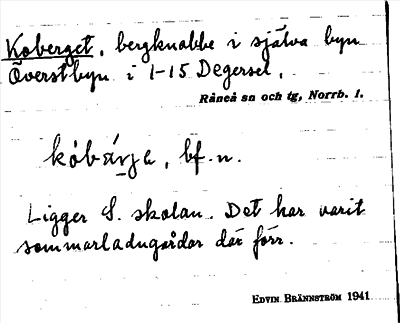 Koberget, bergknabbe i själva byn
Överstbyn i 1-15 Degersel.
Råneå sn och tg, Norrb. l.
kóbär̀ja, bf. n.
Ligger S. skolan. Det har varit
sommarladugårdar där förr.
EDVIN BRÄNNSTRÖM 1941